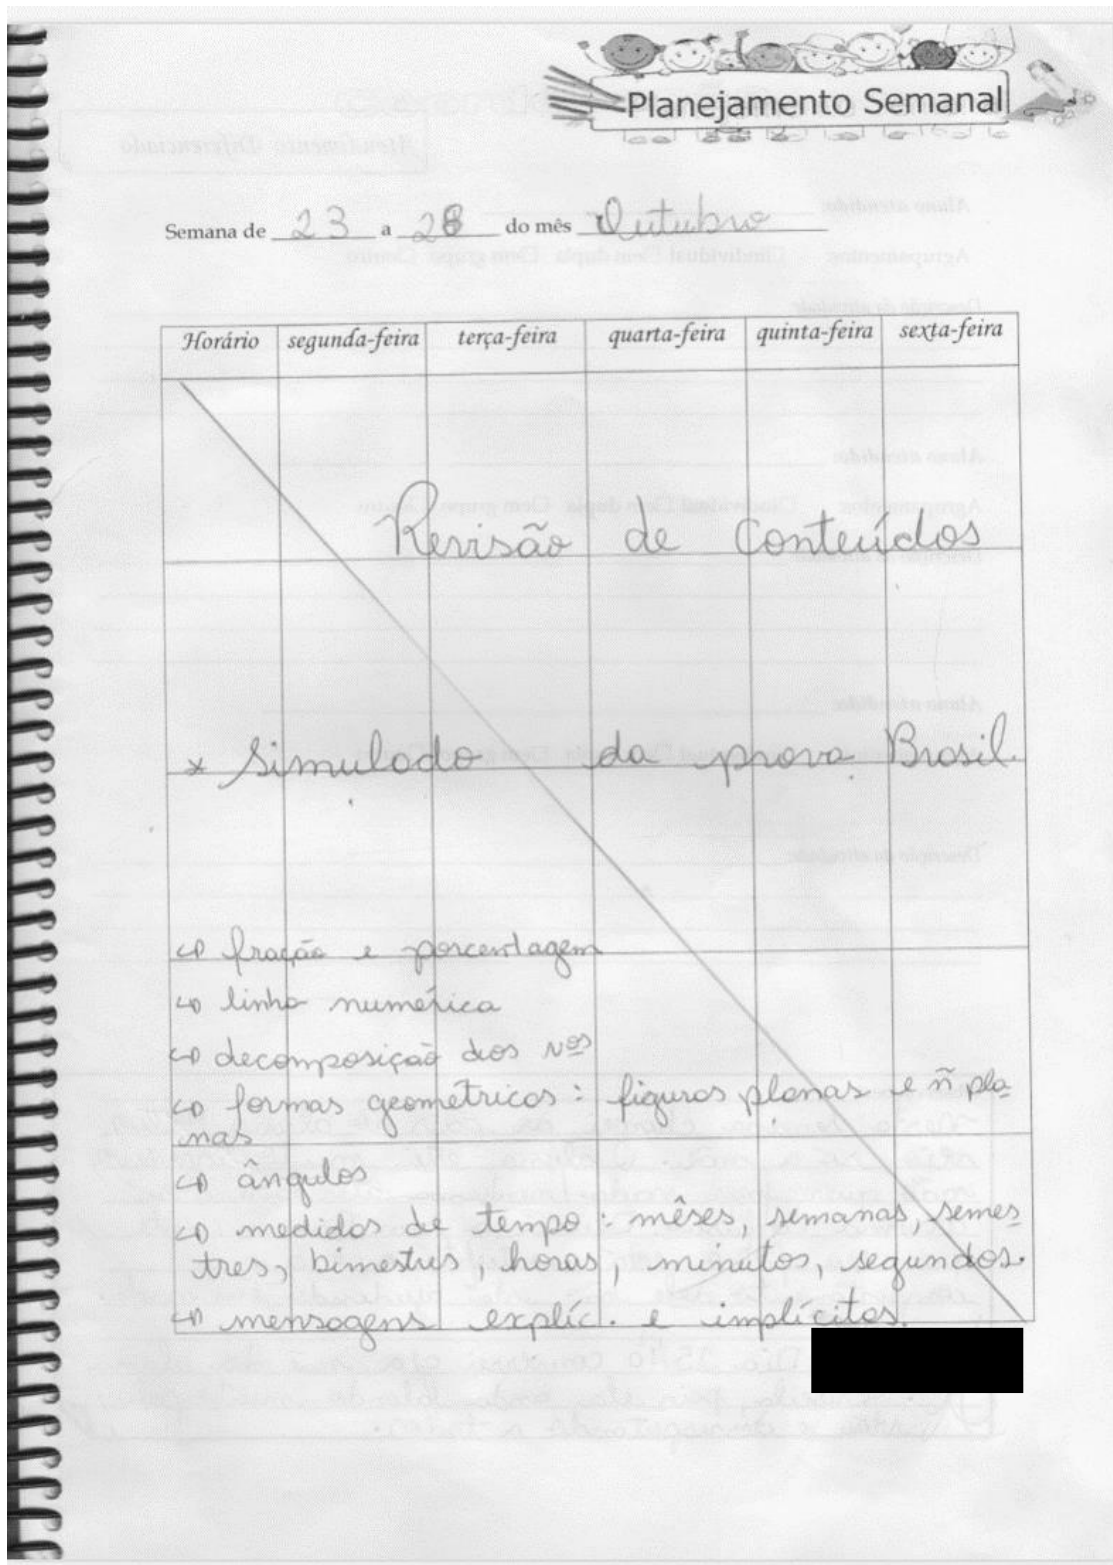 Planejamento Semanal
Semana de 23 a 28 do mês Outubro
Horário segunda-feira terça-feira quarta-feira quinta-feira sexta-feira
Revisão de Conteúdos
* Simulado da prova Brasil.
↳ fração e porcentagem
↳ linha numérica
↳ decomposição dos nºs
↳ formas geométricas: figuras planas e ñ pla-
nas
↳ ângulos
↳ medidas de tempo: mêses, semanas, semes
tres, bimestres, horas, minutos, segundos.
↳ mensagens explíc. e implícitas.